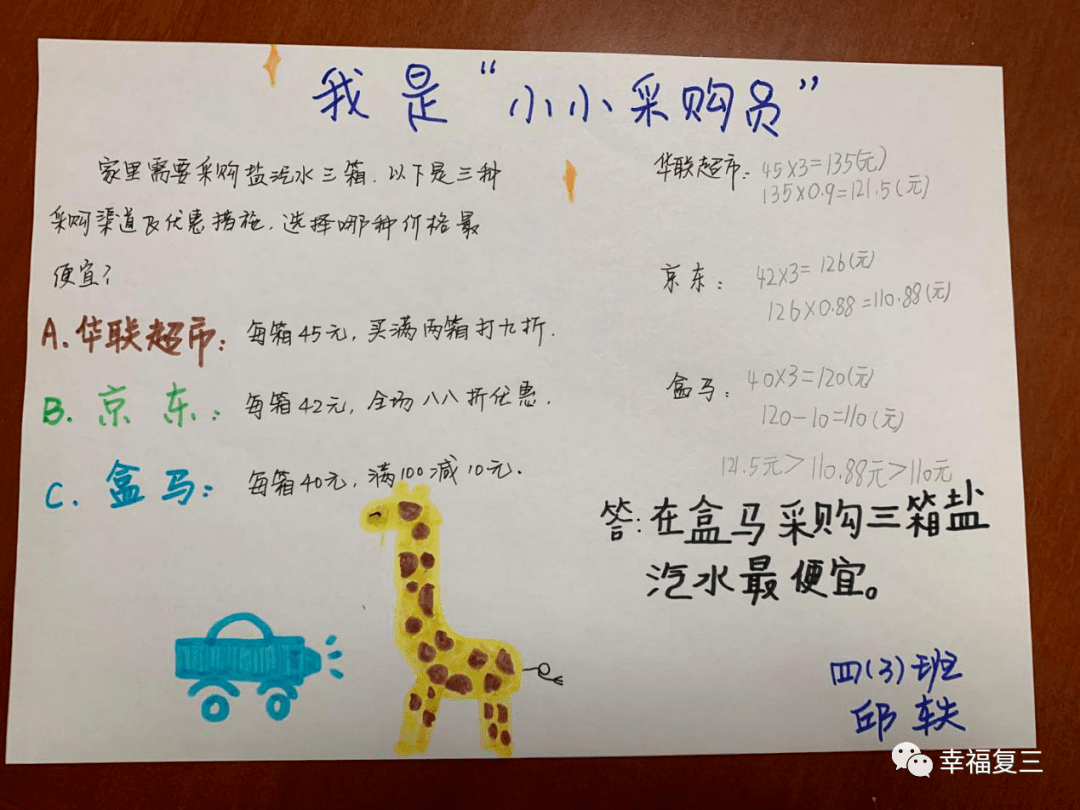 我是“小小采购员”
家里需要采购盐汽水三箱.以下是三种
采购渠道及优惠措施,选择哪种价格最
便宜?
A.华联超市:每箱45元,买满两箱打九折.
B.京东:每箱42元,全场八八折优惠.
C.盒马:每箱40元,满100减10元.
华联超市:45×3=135(元)
135×0.9=121.5(元)
京东:42×3=126(元)
126×0.88=110.88(元)
盒马:40×3=120(元)
120-10=110(元)
121.5元>110.88元>110元
答:在盒马采购三箱盐
汽水最便宜。
四(3)班
邱轶
幸福复三